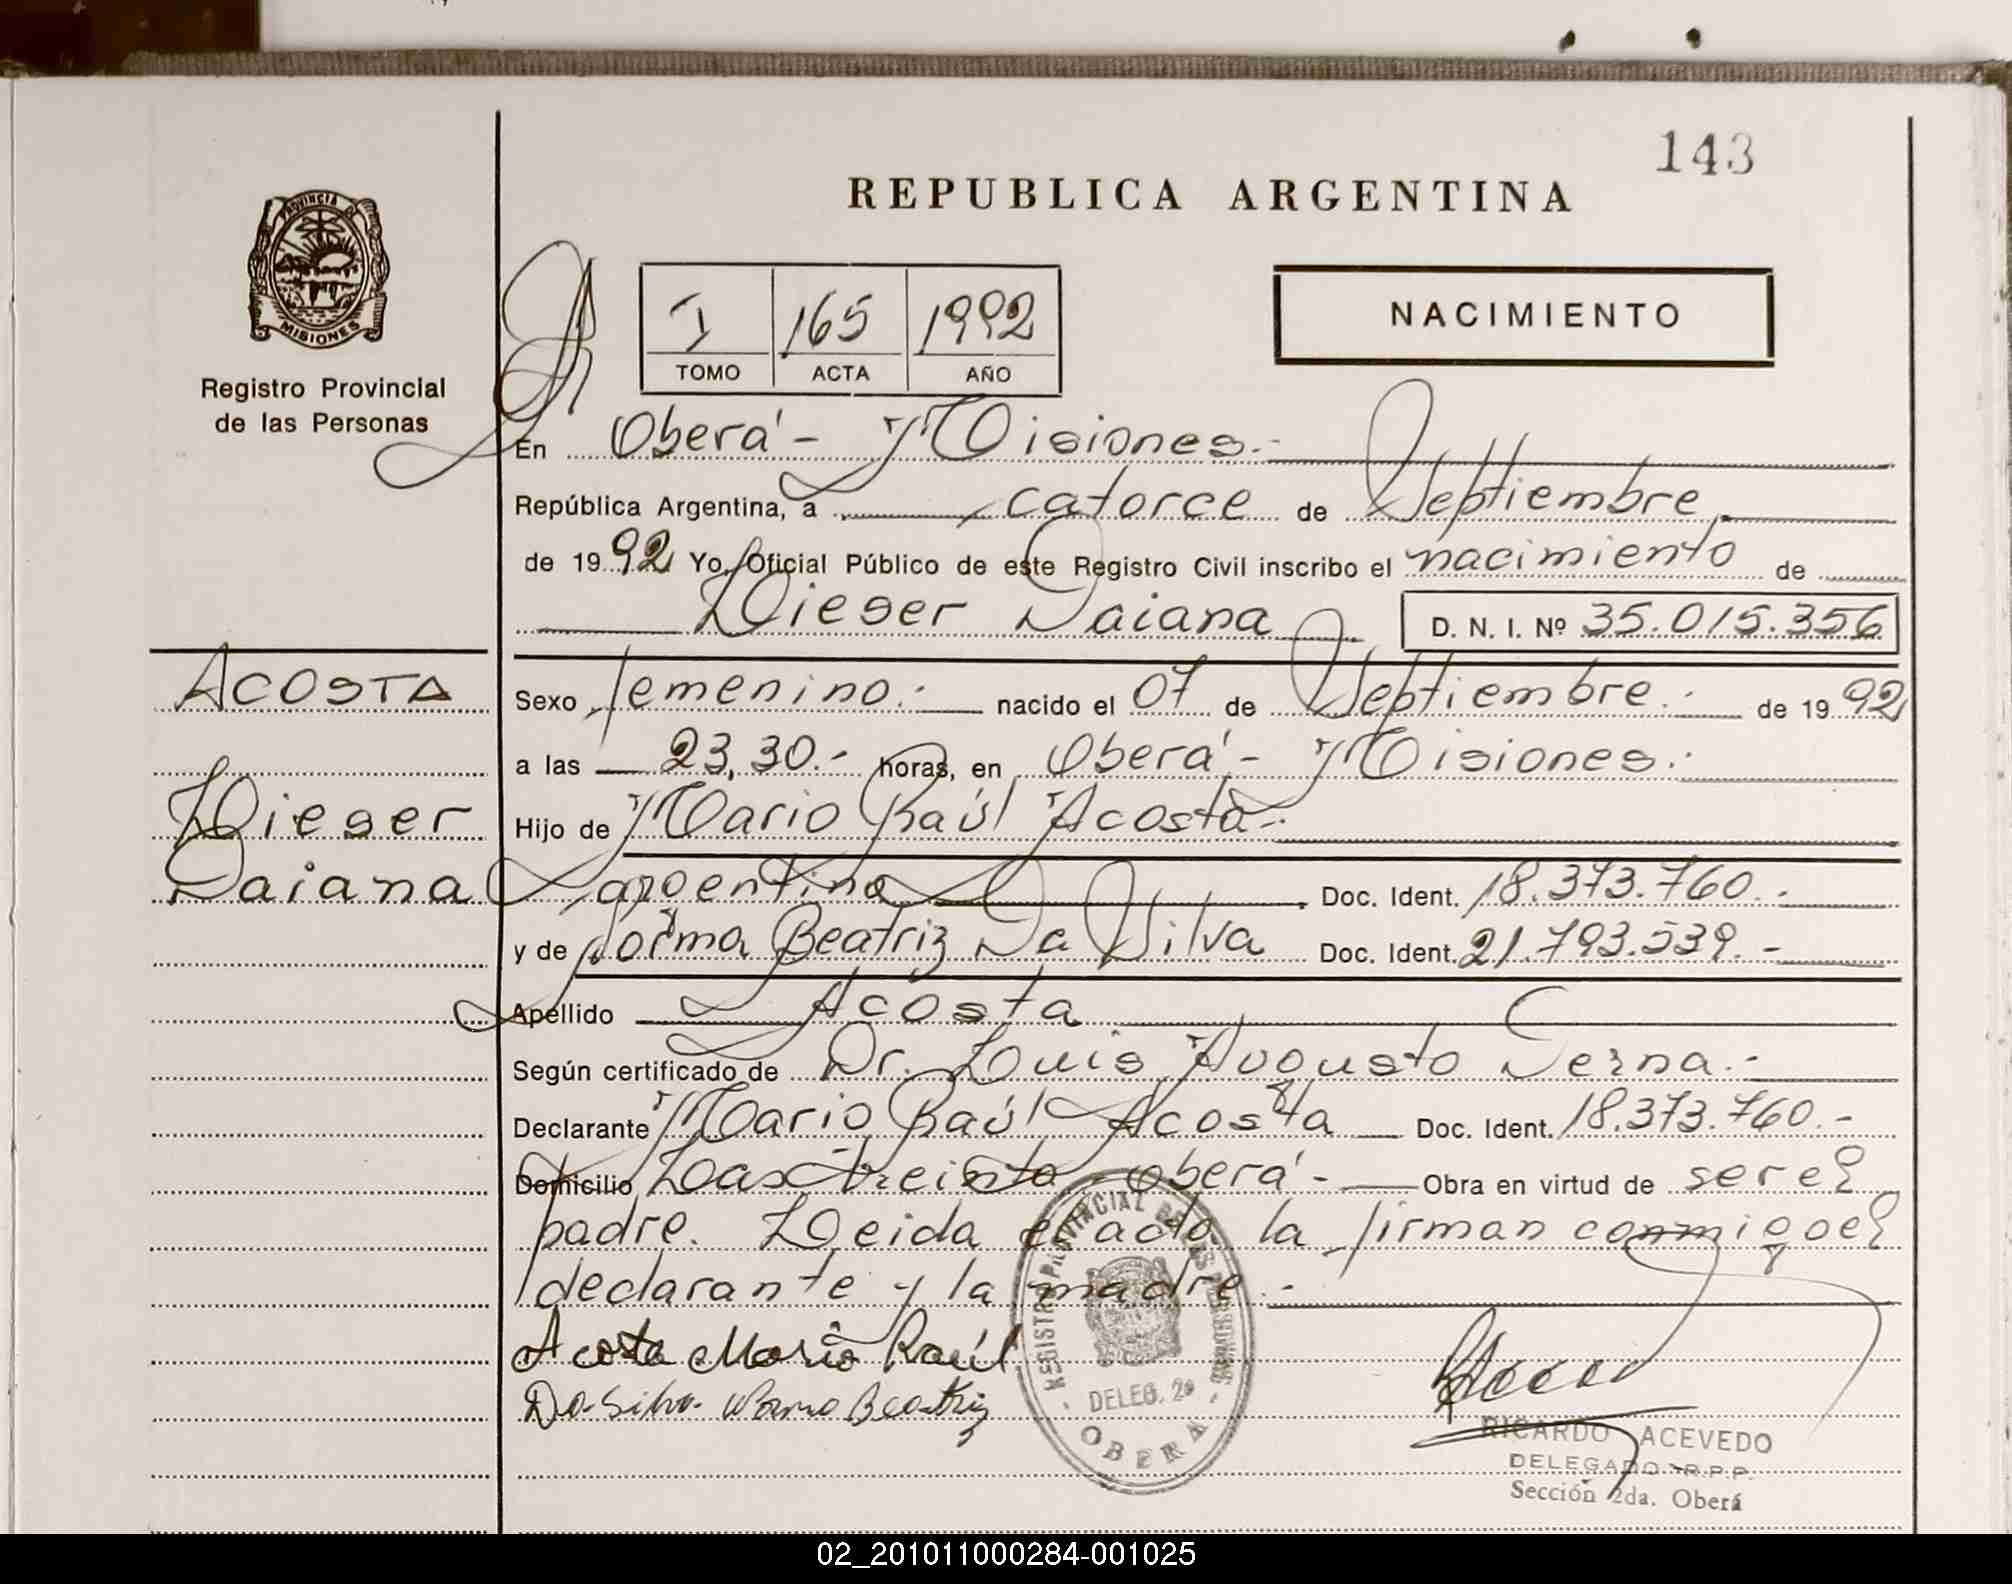 143
REPUBLICA ARGENTINA
PROVINCIA DE
MISIONES
Registro Provincial
de las Personas
I 165 1992
TOMO ACTA AÑO
NACIMIENTO
En Oberá - Misiones.-
República Argentina, a catorce de Septiembre
de 1992 Yo, Oficial Público de este Registro Civil inscribo el nacimiento de
Lieser Daiana D. N. I. Nº 35.015.356
ACOSTA
Lieser
Daiana
Sexo femenino.- nacido el 07 de Septiembre.- de 1992
a las 23,30.- horas, en Oberá - Misiones.-
Hijo de Mario Raúl Acosta.-
argentino Doc. Ident. 18.373.760.-
y de Norma Beatriz Da Silva Doc. Ident. 21.793.539.-
Apellido Acosta
Según certificado de Dr. Luis Augusto Terna.-
Declarante Mario Raúl Acosta Doc. Ident. 18.373.760.-
Domicilio Las Treinta - Oberá - Obra en virtud de ser el
padre. Leida el acta la firman conmigo el
declarante y la madre.-
Acosta Mario Raúl
Da Silva Norma Beatriz
REGISTRO PROVINCIAL DE LAS PERSONAS
DELEG. 2ª
OBERA
RICARDO ACEVEDO
DELEGADO R.P.P.
Sección 2da. Oberá
02_201011000284-001025